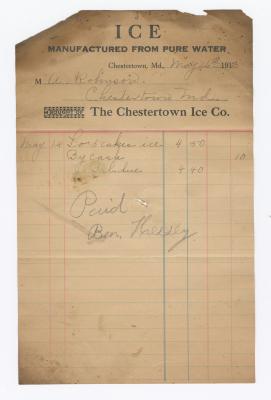 ICE
MANUFACTURED FROM PURE WATER
Chestertown, Md., May 191
M A. Robinson.
Chestertown Md.
BOUGHT OF The Chestertown Ice Co.
May 12 cakes ice 4 50
By cash 10
4 40
Paid
Ben